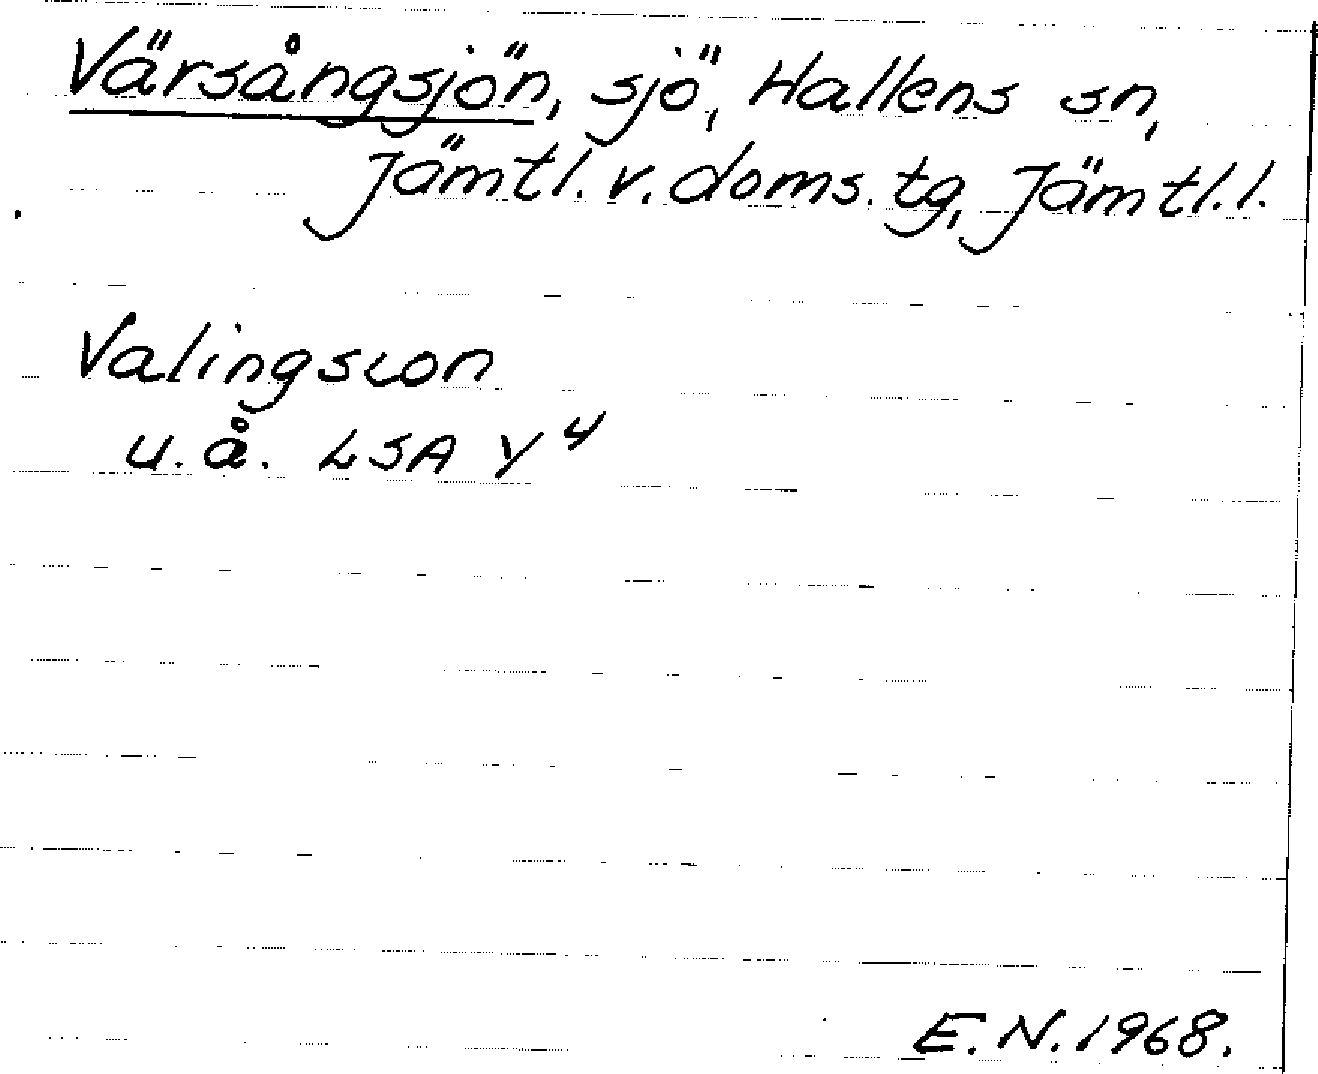 Värsångsjön, sjö, Hallens sn,
Jämtl. v. doms. tg, Jämtl. l.
Valingsion
u. å. LSA Y 4
E. N. 1968.